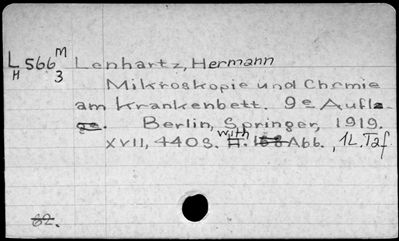 L 566 M Lenhartz, Hermann
H 3
Mikroskopie und Chemie
am Krankenbett. 9e Aufla-
ge. Berlin, Springer, 1919.
XVII, 440 S. with Abb., 1L. Taf
62.